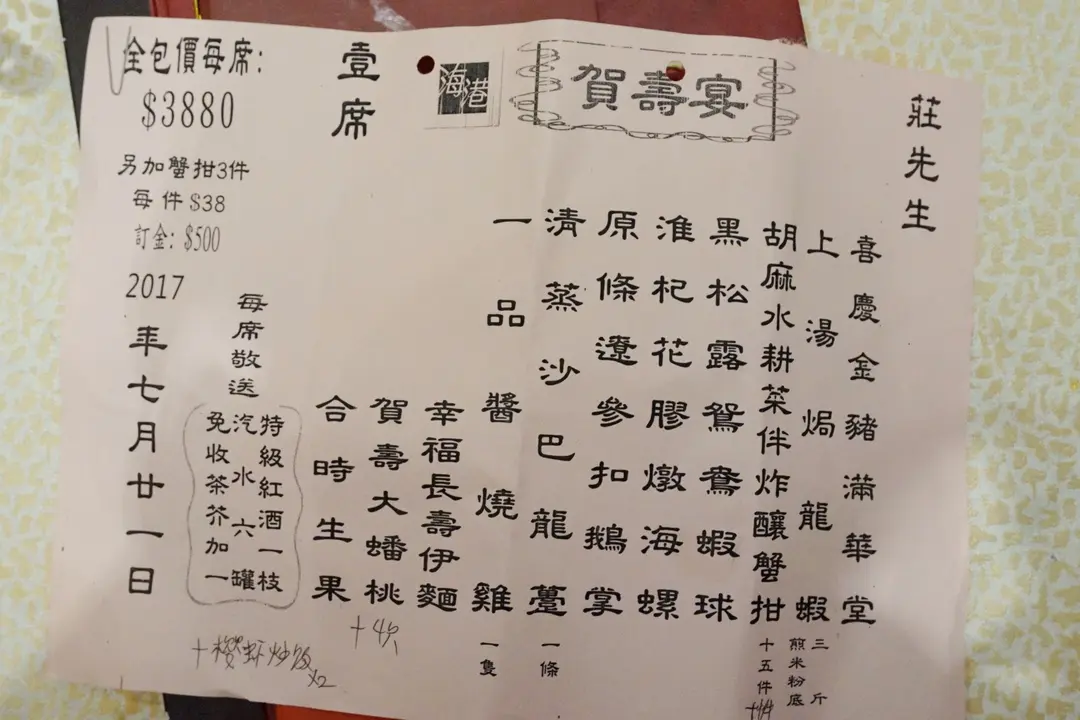 賀壽宴
海港
莊先生
喜慶金豬滿華堂
上湯焗龍蝦
三斤
煎米粉底
胡麻水耕菜伴炸釀蟹拑
十五件
黑松露鴛鴦蝦球
淮杞花膠燉海螺
原條遼參扣鵝掌
清蒸沙巴龍躉
一條
一品醬燒雞
一隻
幸福長壽伊麵
賀壽大蟠桃
合時生果
壹席
全包價每席:
$3880
另加蟹拑3件
每件$38
訂金: $500
每席敬送
特級紅酒一枝
汽水六罐
免收茶芥加一
2017
年七月廿一日
+櫻虾炒饭
x2